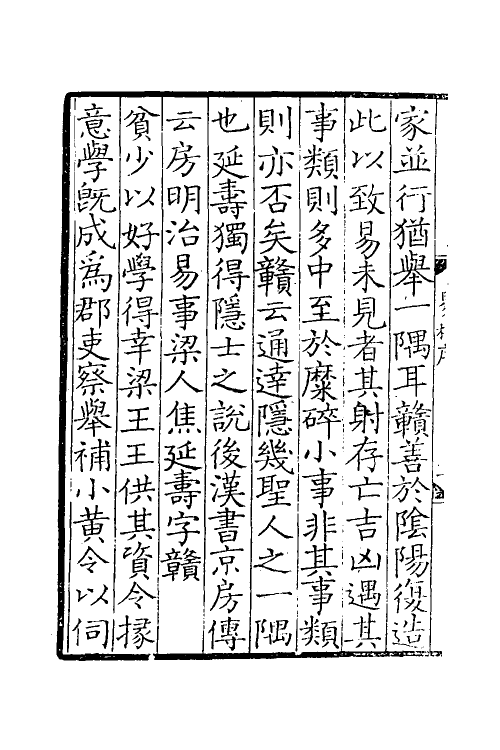 家並行猶舉一隅耳贛善於陰陽復造
此以致易未見者其射存亡吉凶遇其
事類則多中至於糜碎小事非其事類
則亦否矣贛云通達隱幾聖人之一隅
也延壽獨得隱士之說後漢書京房傳
云房明治易事梁人焦延壽字贛
貧少以好學得幸梁王王供其資令㨿
意學旣成爲郡吏察舉補小黃令以伺